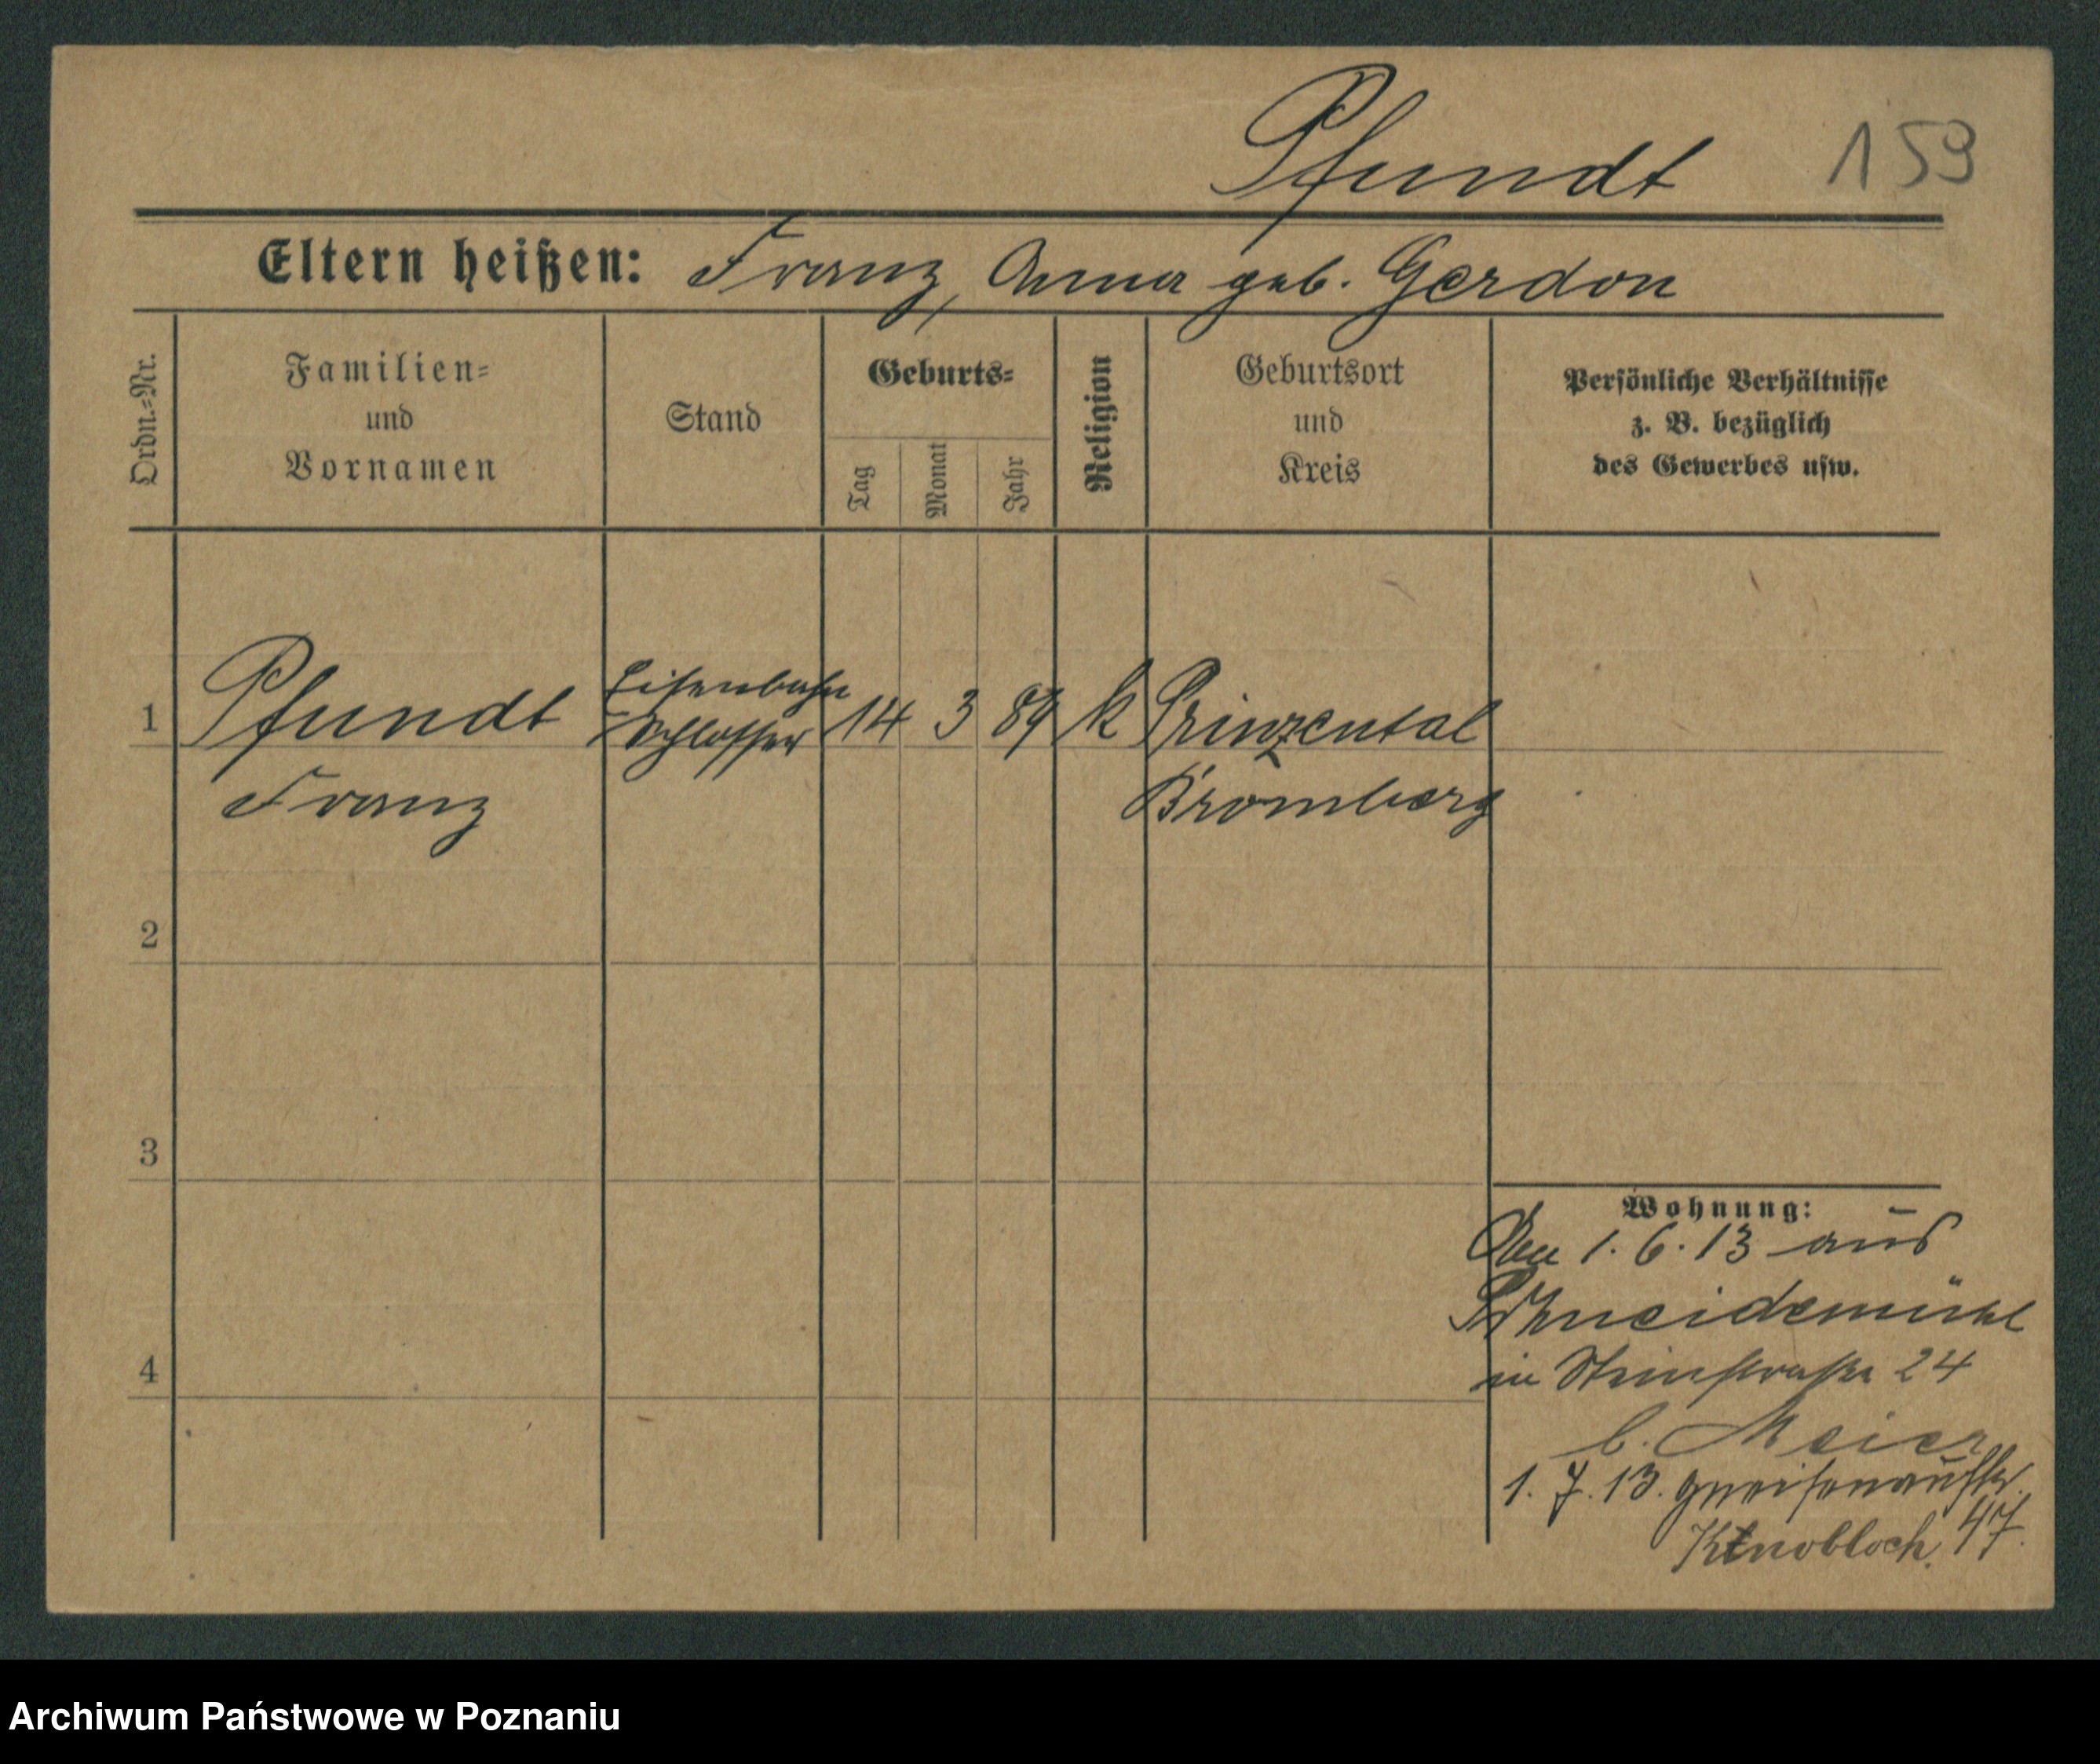 Pfundt 159
Eltern heißen: Franz, Anna geb. Gerdon
Ordn.=Nr.
Familien=
und
Vornamen
Stand
Geburts=
Tag
Monat
Jahr
Religion
Geburtsort
und
Kreis
Persönliche Verhältnisse
z. B. bezüglich
des Gewerbes usw.
1 Pfundt Eisenbahn 14 3 89 k Prinzental
Schlosser
Franz Bromberg
2
3
4
Wohnung:
Den 1. 6. 13 aus
Schneidemühl
in Steinstraße 24
b. Meier
1. 7. 13. Gneisenaustr. 47.
Knobloch.
Archiwum Państwowe w Poznaniu